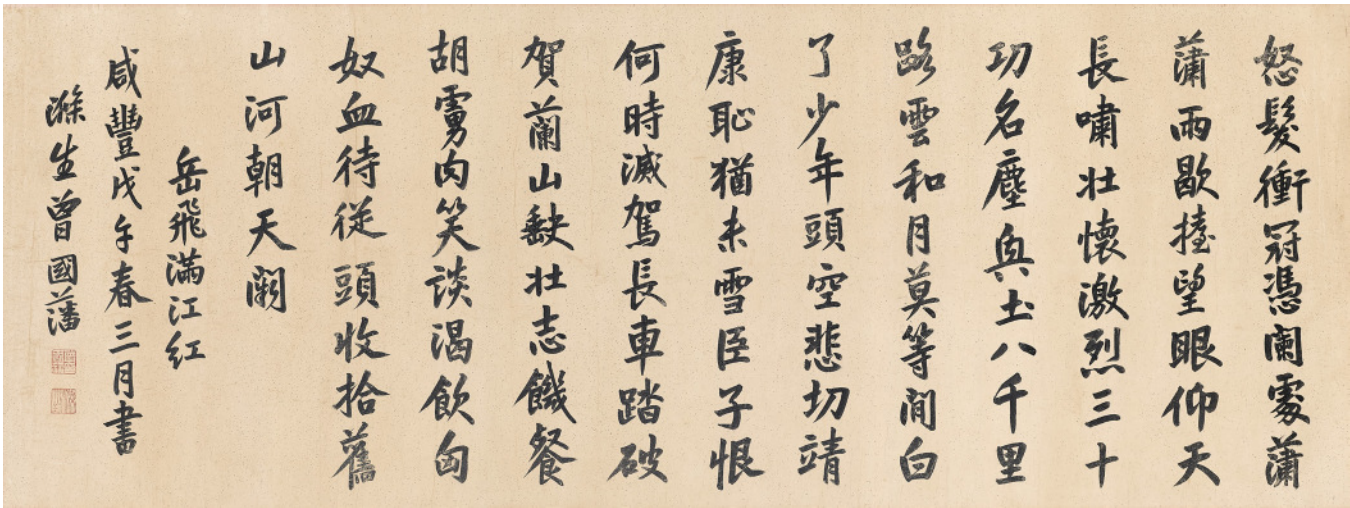 怒髮衝冠憑闌處瀟
瀟雨歇擡望眼仰天
長嘯壯懷激烈三十
功名塵與土八千里
路雲和月莫等閒白
了少年頭空悲切靖
康恥猶未雪臣子恨
何時滅駕長車踏破
賀蘭山缺壯志饑餐
胡虜肉笑談渴飲匈
奴血待從頭收拾舊
山河朝天闕
岳飛滿江紅
咸豐戊午春三月書
滌生曾國藩